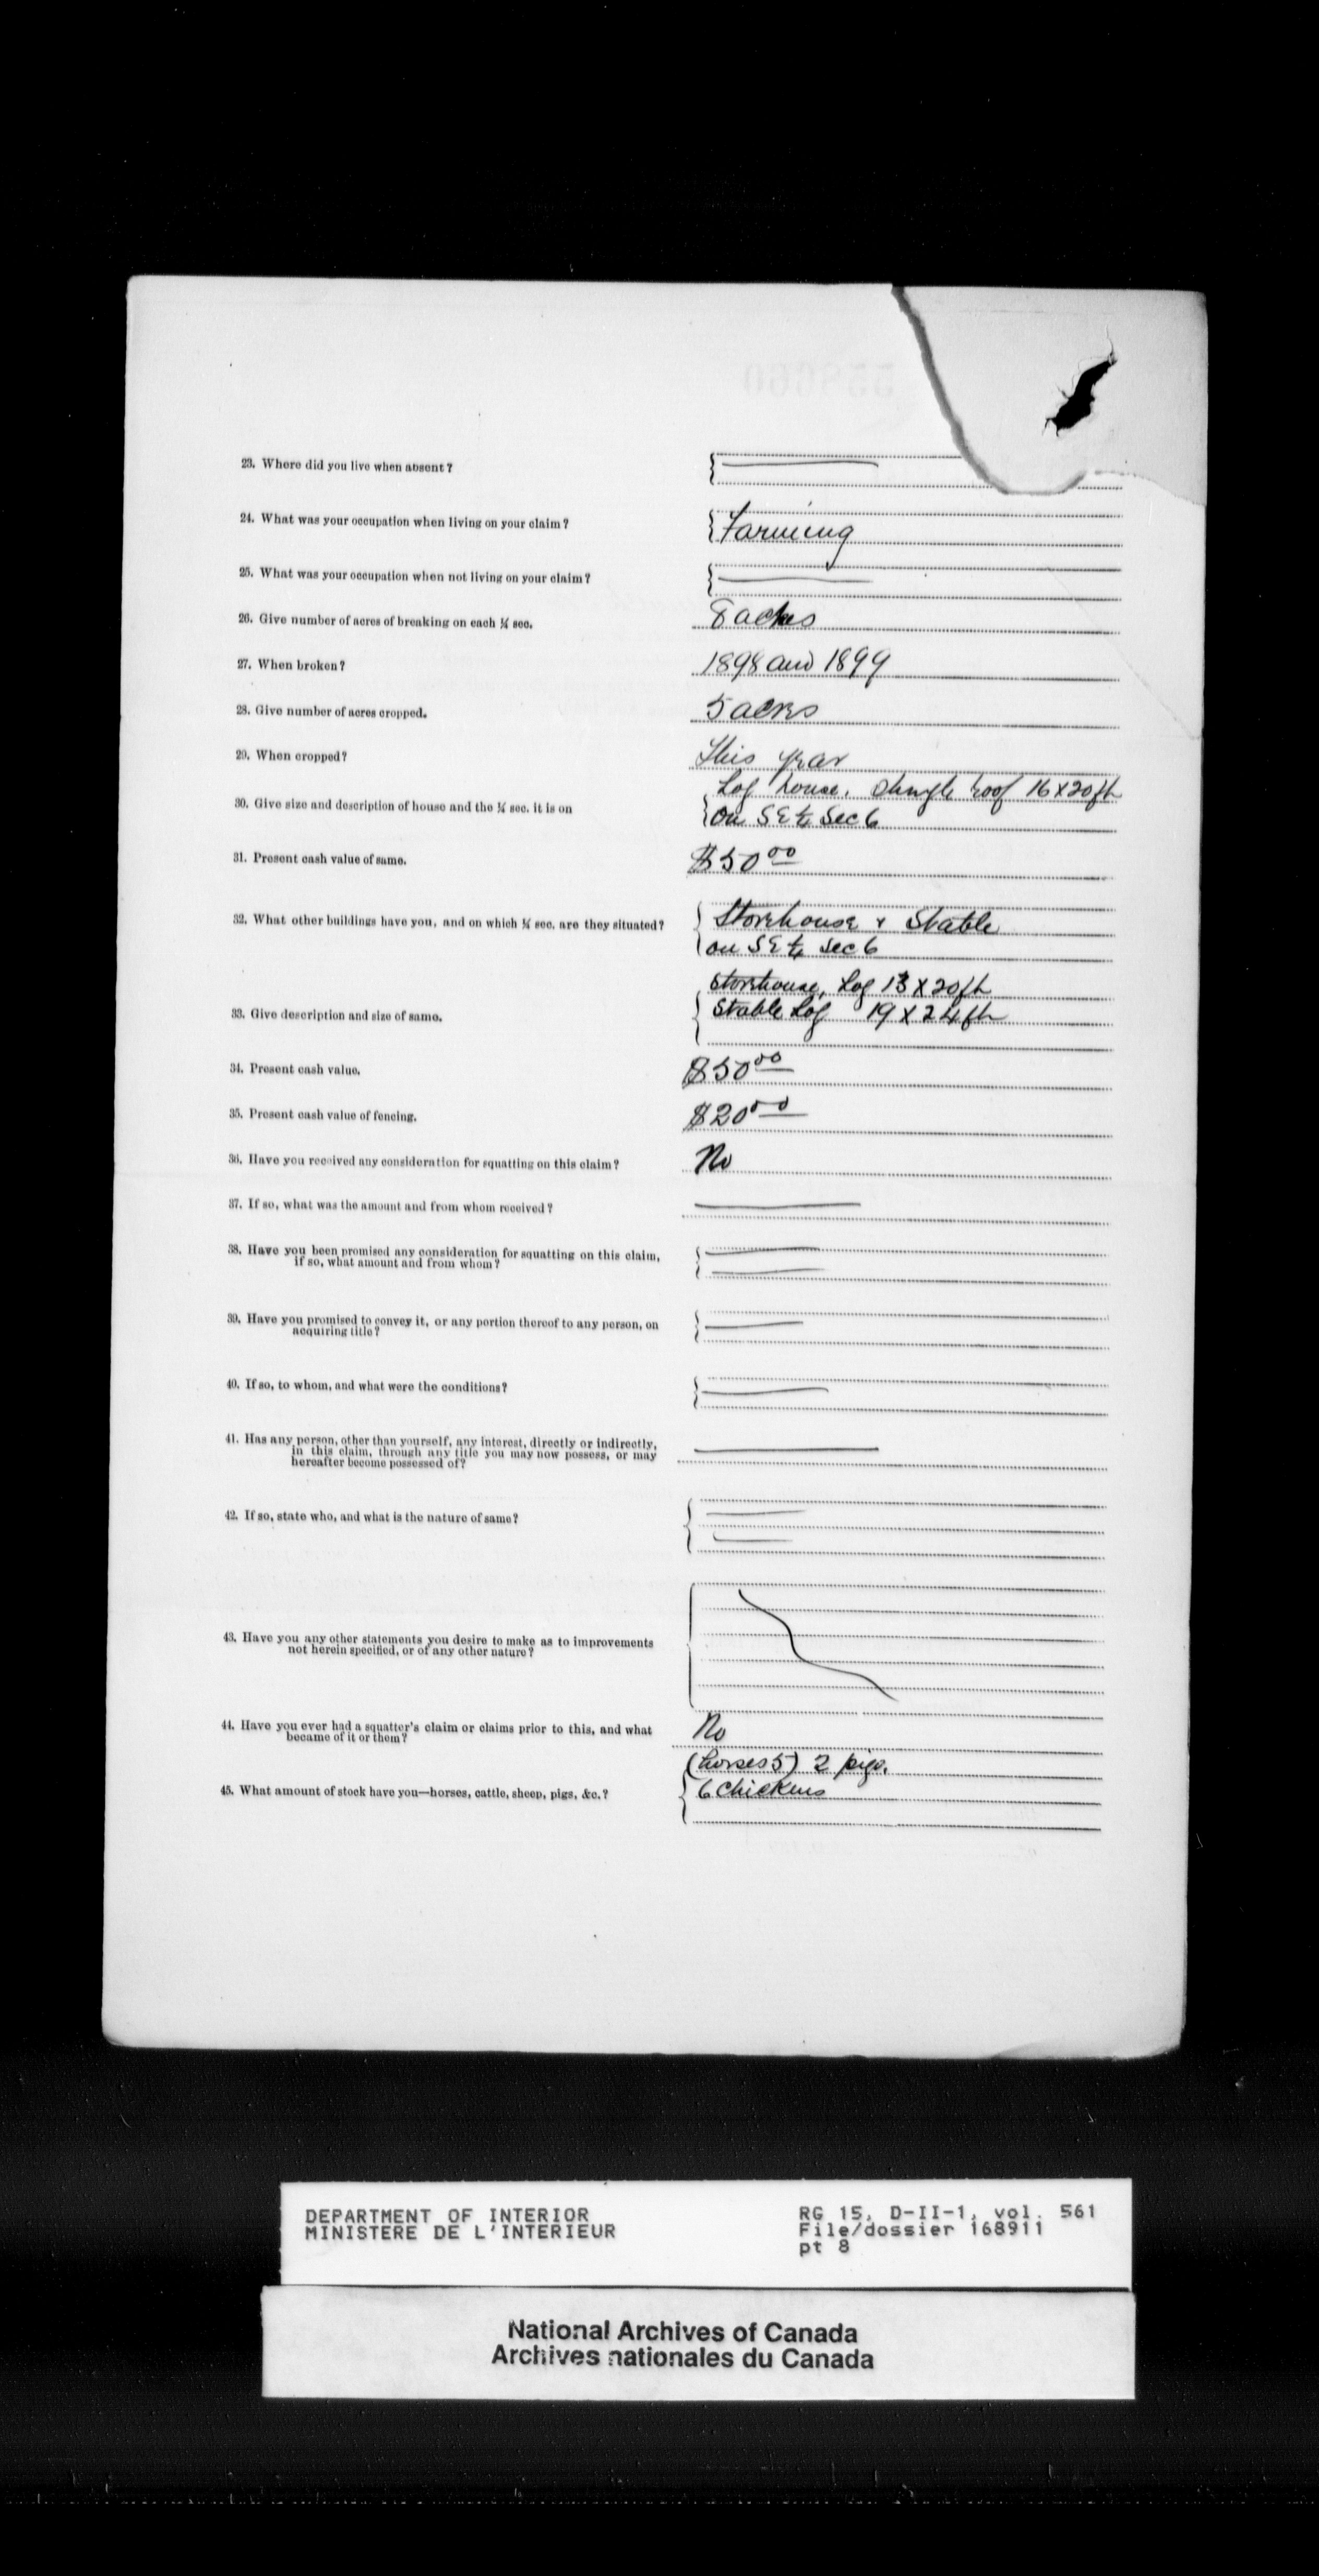 23. Where did you live when absent?
24. What was your occupation when living on your claim? Farming
25. What was your occupation when not living on your claim?
26. Give number of acres of breaking on each ¼ sec. 8 acres
27. When broken? 1898 and 1899
28. Give number of acres cropped. 5 acres
29. When cropped? This year
Log house. Shingle roof 16 x 20 ft
30. Give size and description of house and the ¼ sec. it is on
on SE ¼ Sec 6
31. Present cash value of same. $50.00
32. What other buildings have you, and on which ¼ sec. are they situated? Storehouse & Stable
on SE ¼ Sec 6
Storehouse, Log 13 x 20 ft
33. Give description and size of same. Stable Log 19 x 24 ft
34. Present cash value. $50.00
35. Present cash value of fencing. $20.00
36. Have you received any consideration for squatting on this claim? No
37. If so, what was the amount and from whom received?
38. Have you been promised any consideration for squatting on this claim,
if so, what amount and from whom?
39. Have you promised to convey it, or any portion thereof to any person, on
acquiring title?
40. If so, to whom, and what were the conditions?
41. Has any person, other than yourself, any interest, directly or indirectly,
in this claim, through any title you may now possess, or may
hereafter become possessed of?
42. If so, state who, and what is the nature of same?
43. Have you any other statements you desire to make as to improvements
not herein specified, or of any other nature?
44. Have you ever had a squatter's claim or claims prior to this, and what No
became of it or them?
(horses 5) 2 pigs.
45. What amount of stock have you—horses, cattle, sheep, pigs, &c.? 6 Chickens
DEPARTMENT OF INTERIOR RG 15, D-II-1, vol. 561
MINISTERE DE L'INTERIEUR File/dossier 168911
pt 8
National Archives of Canada
Archives nationales du Canada